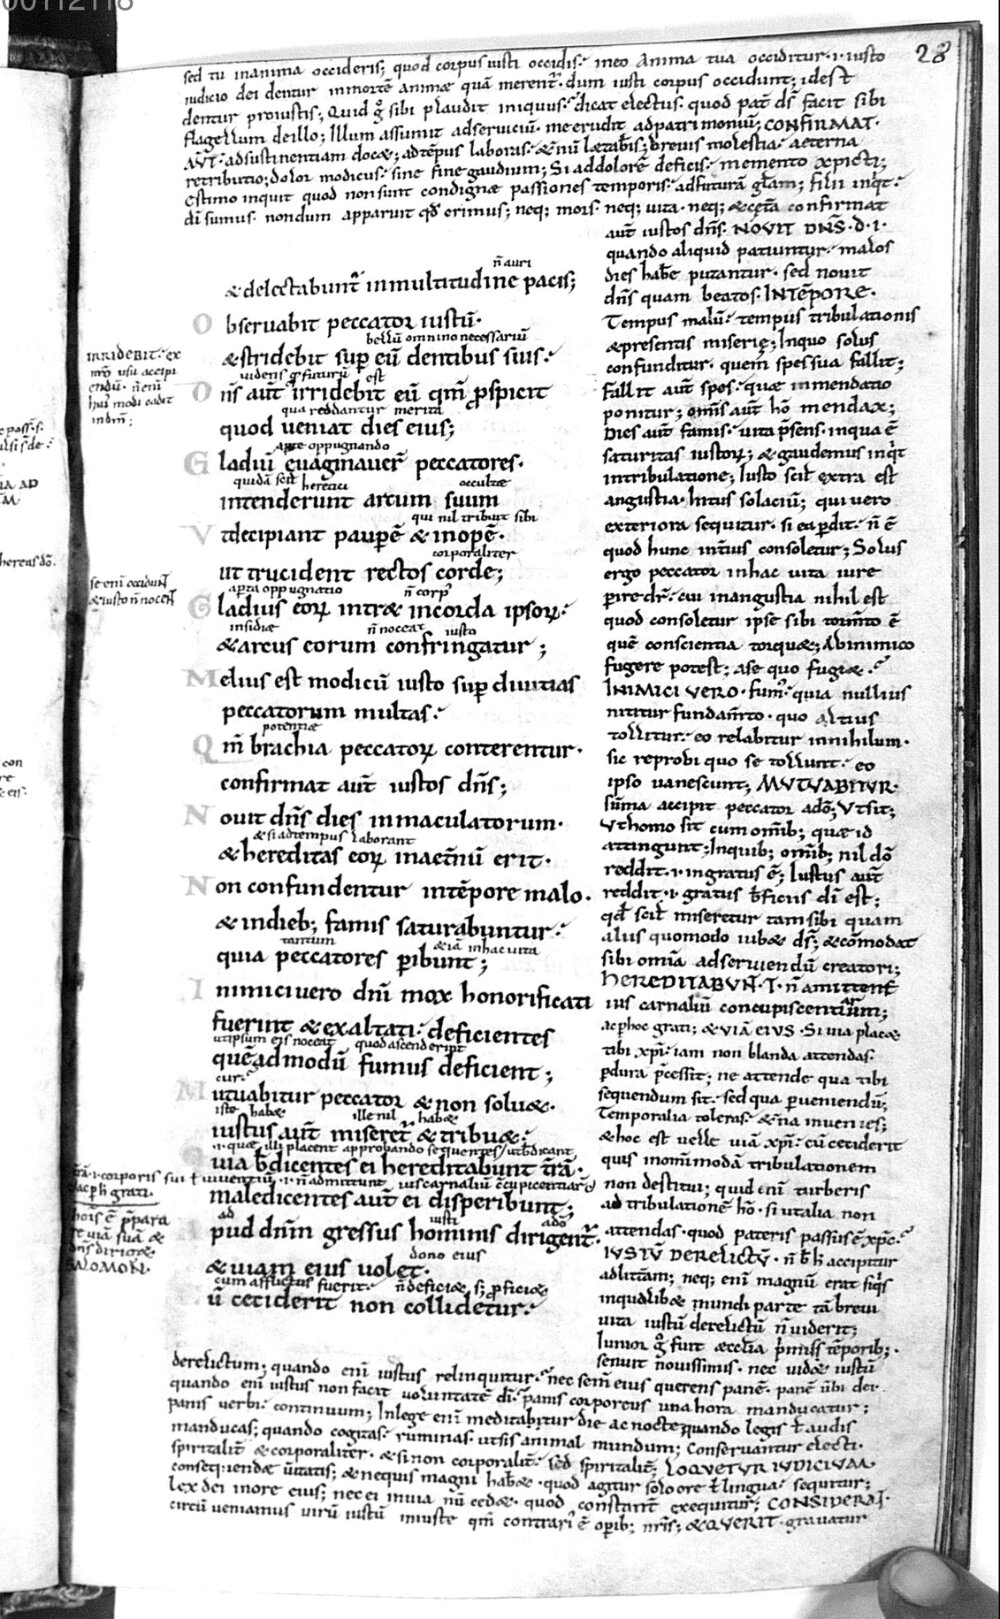 00112118
28
sed tu in anima occideris; quod corpus iusti occidis· in eo Anima tua occiditur· ı· iusto
iudicio dei dentur in morte animæ quā merent̄· dum iusti corpus occidunt; id est
dentur pro iustis; Quid ḡ sibi plaudit iniquus· dicat electus· quod pat̄ ds̄ facit sibi
flagellum de illo; Illum assumit ad serviciū· me erudit ad patrimoniū; CONFIRMAT·
AVT̄· ad sustinentiam docæ; ad tēpus laboras· & in
retributio; dolor modicus· sine fine gaudium; Si ad dolorē deficis· memento xp̄icti;
Estimo inquit quod non sunt condignæ passiones temporis· ad futurā gl̄am; filii inq̄t·
dī sumus· nondum apparuit qđ erimus; neq; mors· neq; uita· neq; & cet̄a confirmat
aut̄ iustos dn̄s· NOVIT DN̄S· D· I·
quando aliquid patiuntur· malos
dies hab̄e putantur· sed nouit
dn̄s quam beatos· IN TĒPORE·
Tempus malū· tempus tribulationis
& presentis miserię; In quo solus
confunditur· quem spes sua fallit;
fallit aut̄ spes· quæ in mendatio
ponitur; om̄is aut̄ hō mendax;
Dies aut̄ famis· uita p̄sens· in qua ē
saturitas iustoꝝ; & gaudemus inq̄t
in tribulatione; Iusto scil̄ extra est
angustia· Intus solaciū; qui uero
exteriora sequitur· si ea p̄dit· n̄ ē
quod hunc int̄ius consoletur; Solus
ergo peccator in hac uita iure
p̄ire dr̄· cui in angustia nihil est
quod consoletur ipse sibi torm̄to ē
quē conscientia torquæ; Ab inimico
fugere potest; a se quo fugiæ·
INIMICI VERO· fum̄· quia nullius
nititur fundam̄to· quo altius
tollitur· eo relabitur in nihilum·
sic reprobi quo se tollunt· eo
ipso uanescunt; MUTUABITUR·
sūma accipit peccator a dō; Vt sit;
Vt homo sit cum om̄ib; quæ id
attingunt; In quib; om̄ib; nil dō
reddit· ı· ingratus ē; Iustus aut̄
reddit· ı· gratus b̄ficiis dī est;
qđ scil̄ miseretur tam sibi quam
aliis quomodo iubæ ds̄; & cōmodat
sibi omīa ad serviendū creatori;
HEREDITABVN̄·T̄· n̄ amittent̄
ius carnaliū concupiscentiarum;
ac p̄ hoc grati; & VIĀ EIVS· Si uia placæ
tibi xp̄i· iam non blanda attendas·
p̄dura p̄cessit; ne attende qua tibi
sequendum sit· sed qua p̄ueniendū;
Temporalia toleras· & t̄na inuenies;
& hoc est uelle uiā xp̄i· cū ceciderit
quis in om̄imodā tribulationem
non destitui; quid enī turberis
ad tribulationē hō· si ut alia non
attendas· quod pateris passus ē xp̄c·
IVSTŪ DERELICTŪ· n̄ b̄ accipitur
ad litt̄am; neq; enī magnū erat si q̄s
in qualibæ mundi parte tā breui
uita iustū derelictū n̄ uiderit;
Iunior ḡ fuit æccl̄ia p̄mis tēporib;
senuit nouissimis· nec uidæ iustū
& delectabunt̄ in multitudine pacis;
O bseruabit peccator iustū·
bellū omnino necessariū
& stridebit sup̄ eū dentibus suis·
uidens q̄ futurū est
D n̄s aut̄ irridebit eū qm̄ p̄spicit
qua reddantur merita
quod ueniat dies eius;
aperte oppugnando
G ladiū euaginauer̄ peccatores·
quidā scil̄ heretici occultæ
intenderunt arcum suum
qui nil tribuit sibi
V t decipiant paup̄ē & inopē·
corporaliter
ut trucident rectos corde;
ap̄ta oppugnatio n̄ corp̄
G ladius eoꝝ intræ in corda ipsoꝝ·
insidiæ n̄ noceat iusto
& arcus eorum confringatur;
M elius est modicū iusto sup̄ diuitias
peccatorum multas·
potentiæ
Q m̄ brachia peccatoꝝ conterentur·
confirmat aut̄ iustos dn̄s;
N ouit dn̄s dies inmaculatorum·
& si ad tempus laborant
& hereditas eoꝝ in aet̄nū erit·
N on confundentur in tēpore malo·
& in dieb; famis saturabuntur·
tantum & iā in hac uita
quia peccatores p̄ibunt;
I nimici uero dn̄i mox honorificati
fuerint & exaltati· deficientes
ut ipsum eis noceat quod ascenderint
quēadmodū fumus deficient;
M utuabitur peccator & non soluæ·
iste habæ ille nil habæ
iustus aut̄ miseret̄ & tribuæ·
Q uia b̄dicentes ei hereditabunt t̄rā·
maledicentes aut̄ ei disperibunt;
ad iusti a dō
A pud dn̄m gressus hominis dirigent̄·
dono eius
& uiam eius uolet·
cum afflictus fuerit· n̄ deficiæ s; p̄ficiæ
C ū ceciderit non collidetur·
IRRIDEBIT· ex
n̄ro usu accipi
endū· n̄ enī
hui modi cadit
in dn̄m;
se enī occidunt̄
& iusto n̄ nocen̄t
SALOMON·
derelictum; quando enī iustus relinquitur· nec sem̄ eius querens panē· panē ūbi dei·
quando enī iustus non facit uoluntatē dī· panis corporeus una hora manducatur;
panis uerbi continuum; In lege enī meditabitur die ac nocte quando legis ł audis
manducas; quando cogitas· ruminas· ut sis animal mundum; Conseruantur electi·
spiritalit̄ & corporalit̄er· & si non corporalit̄· sed spiritalit̄; LOQVETVR IVDICIVM·
consequendæ ūitatis; & nequis magni habæ· quod agitur solo ore ł lingua· sequitur;
Lex dei in ore eius; nec ei in uia nū cedæ· quod constant̄ exequitur; CONSIDERAT·
circū ueniamus uirū iustū iniuste qm̄ contrari' ē op̄ib; nr̄is; & QVERIT· grauatur